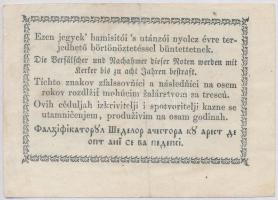 Ezen jegyek' hamisitói 's utánzói nyolcz évre ter-
jedhető börtönöztetéssel büntettetnek.
Die Verfälscher und Nachahmer dieser Noten werden mit
Kerker bis zu acht Jahren bestraft.
Tichto znakov zfalssovníci a následníci na osem
rokov rozdlží mohúcim žalárstvom sa trescú.
Ovih céduljah izkrivitelji i spotvoritelji kazne se
utamničenjem, produživim na osam godinah.
Фалзіфікаторꙋл Шеделор ачестора кꙋ арест де
опт ані се ва педепсі.